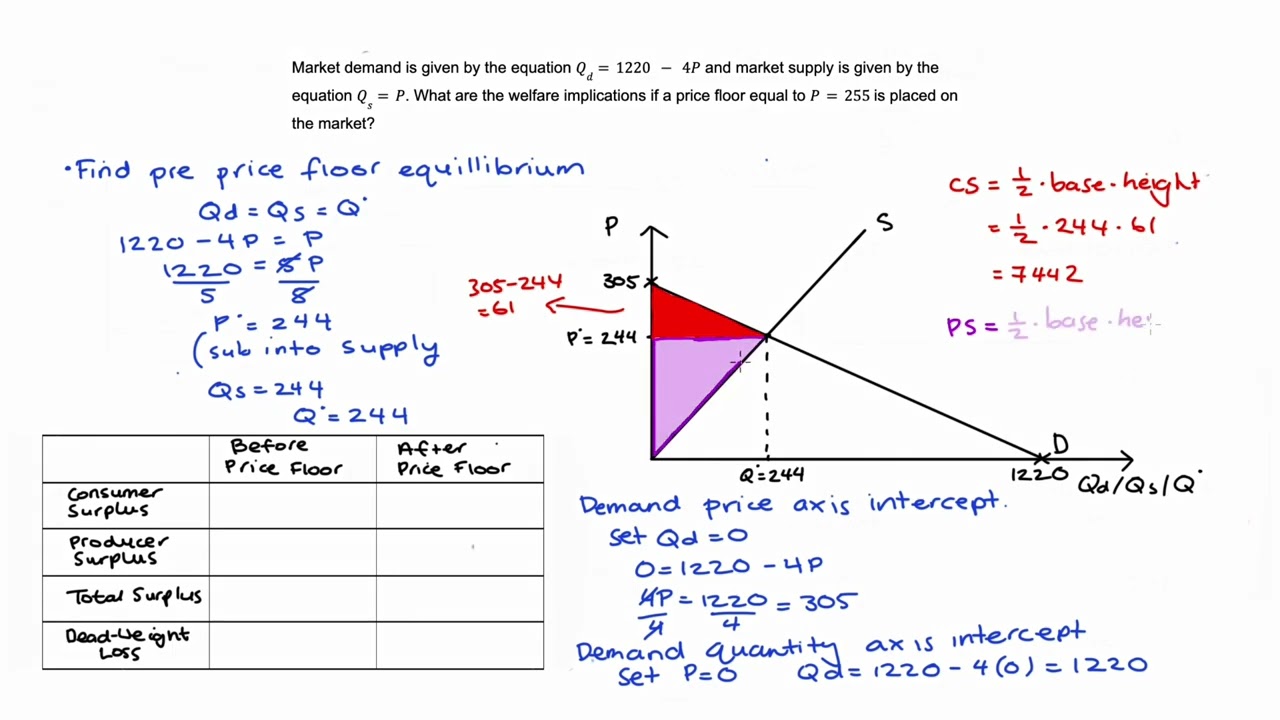 Market demand is given by the equation Qd = 1220 − 4P and market supply is given by the
equation Qs = P. What are the welfare implications if a price floor equal to P = 255 is placed on
the market?
•Find pre price floor equillibrium
Qd = Qs = Q*
1220 - 4P = P
1220 = 5P
5 5
P* = 244
(sub into supply
Qs = 244
Q* = 244
Before Price Floor
After Price Floor
Consumer Surplus
Producer Surplus
Total Surplus
Dead-Weight Loss
P
S
305
305-244
= 61
P* = 244
Q* = 244
D
1220
Qd/Qs/Q*
CS = 1/2 · base · height
= 1/2 · 244 · 61
= 7442
PS = 1/2 · base · hei
Demand price axis intercept.
set Qd = 0
0 = 1220 - 4P
4P = 1220 = 305
4 4
Demand quantity axis intercept
set P = 0 Qd = 1220 - 4(0) = 1220